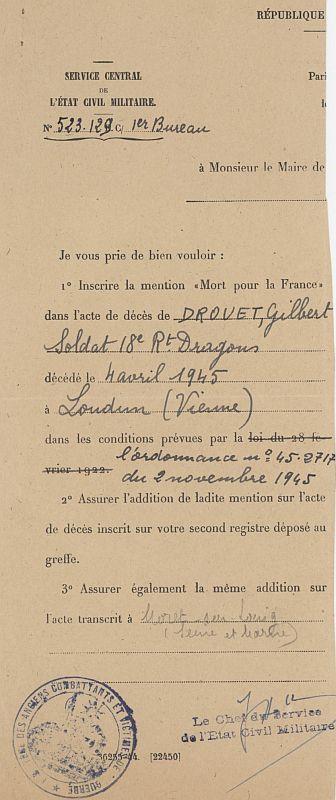 RÉPUBLIQUE
SERVICE CENTRAL
DE
L'ÉTAT CIVIL MILITAIRE.
Pari
le
N° 523.129 C/ 1er Bureau
à Monsieur le Maire de
Je vous prie de bien vouloir :
1° Inscrire la mention «Mort pour la France»
dans l'acte de décès de DROUET, Gilbert
Soldat 18e Rt Dragons
décédé le 4 avril 1945
à Loudun (Vienne)
dans les conditions prévues par la loi du 28 fé-
vrier 1922. l'ordonnance n° 45-2717
du 2 novembre 1945
2° Assurer l'addition de ladite mention sur l'acte
de décès inscrit sur votre second registre déposé au
greffe.
3° Assurer également la même addition sur
l'acte transcrit à Moret sur Loing
(Seine et Marne)
DES ANCIENS COMBATTANTS ET VICTIMES DE
GUERRE
Le Chef du Service
de l'Etat Civil Militaire
[22450]